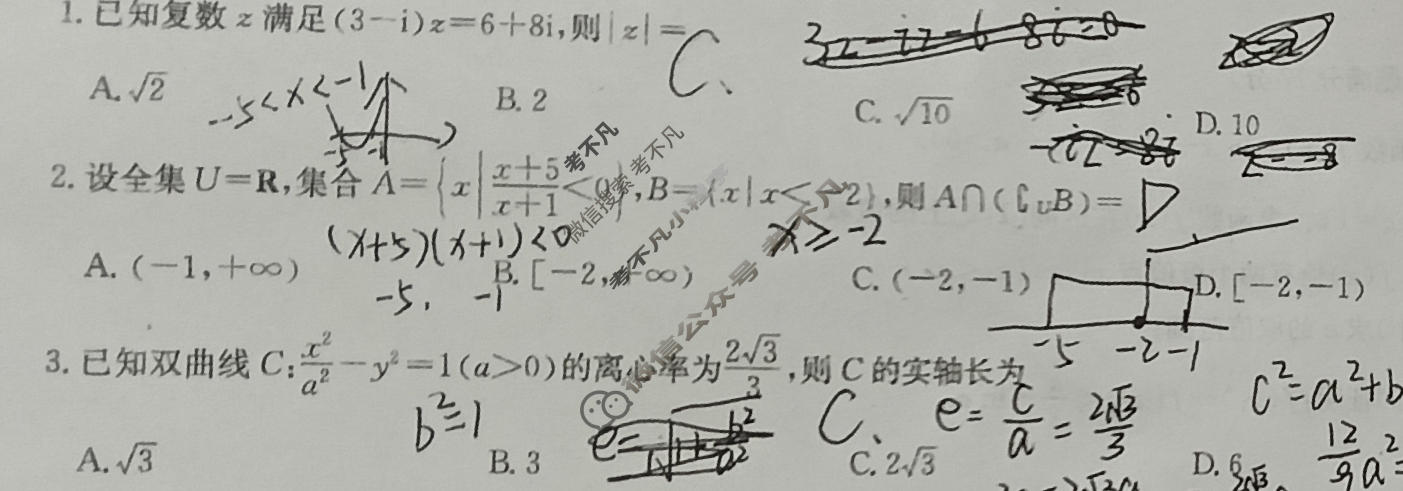 1. 已知复数 z 满足(3-i)z=6+8i,则|z|= C、
A. √2 B. 2 C. √10 D. 10
-5<x<-1
-5 -1
2. 设全集U=R,集合 A={x|(x+5)/(x+1)<0},B={x|x<-2},则 A∩(∁UB)= D
(x+5)(x+1)<0 x≥-2
A. (-1,+∞) B. [-2,+∞) C. (-2,-1) D. [-2,-1)
-5, -1
-5 -2 -1
3. 已知双曲线 C: x²/a² - y²=1(a>0)的离心率为 2√3/3,则 C 的实轴长为
b²=1 C、 e= c/a = 2√3/3 c²=a²+b
A. √3 B. 3 C. 2√3 D. 6
12/9 a²=
考不凡
微信搜索 考不凡
微信公众号 考不凡